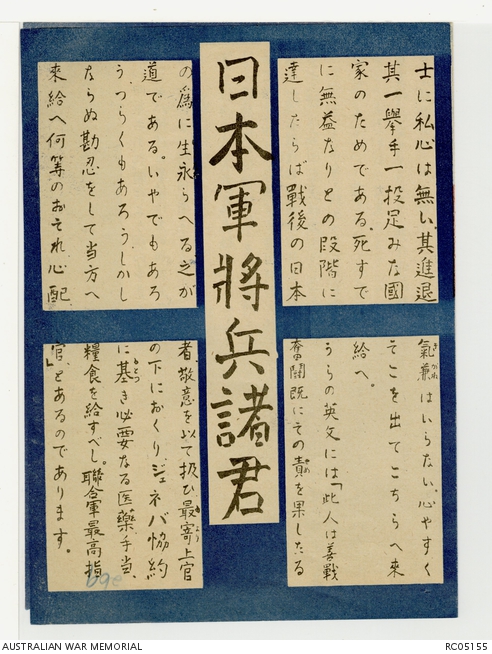 日本軍將兵諸君
士に私心は無い。其進退
其一擧手一投足みな國
家のためである。死すで
に無益なりとの段階に
達したらば戰後の日本
の爲に生永らへる之が
道である。いやでもあろ
う、つらくもあろう、しかし
ならぬ勘忍をして当方へ
来給へ何等のおそれ、心配
氣兼はいらない。心やすく
そこを出てこちらへ来
給へ。
うらの英文には「此人は善戰
奮鬪既にその責を果したる
者、敬意を以て扱ひ最寄上官
の下におくりジェネバ協約
に基き必要なる医藥手当、
糧食を給すべし。聯合軍最高指
官」とあるのであります。
69e
AUSTRALIAN WAR MEMORIAL
RC05155